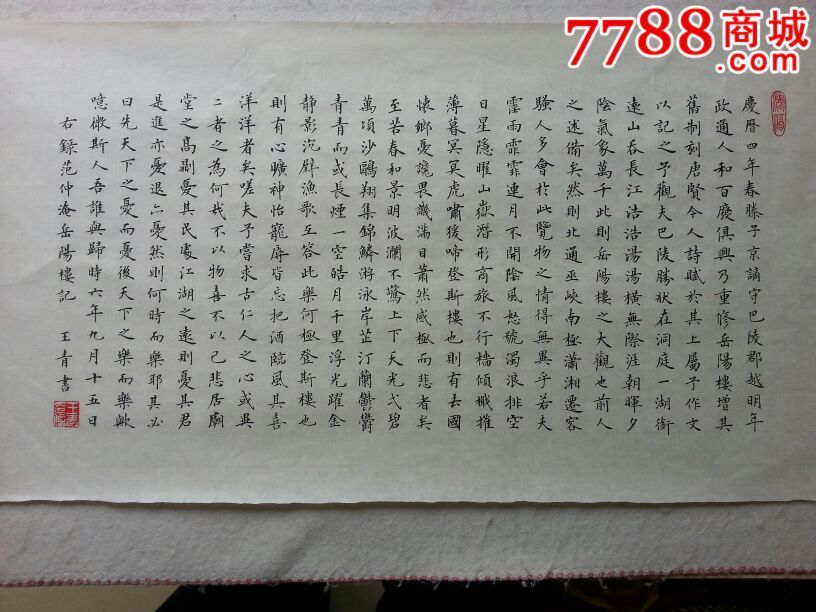 7788商城
慶曆四年春滕子京謫守巴陵郡越明年
政通人和百廢俱興乃重修岳陽樓增其
舊制刻唐賢今人詩賦於其上屬予作文
以記之予觀夫巴陵勝狀在洞庭一湖銜
遠山吞長江浩浩湯湯橫無際涯朝暉夕
陰氣象萬千此則岳陽樓之大觀也前人
之述備矣然則北通巫峽南極瀟湘遷客
騷人多會於此覽物之情得無異乎若夫
霪雨霏霏連月不開陰風怒號濁浪排空
日星隱曜山嶽潛形商旅不行檣傾檝摧
薄暮冥冥虎嘯猨啼登斯樓也則有去國
懷鄉憂讒畏譏滿目蕭然感極而悲者矣
至若春和景明波瀾不驚上下天光弌碧
萬頃沙鷗翔集錦鱗游泳岸芷汀蘭鬱鬱
青青而或長煙一空皓月千里浮光躍金
靜影沉璧漁歌互答此樂何極登斯樓也
則有心曠神怡寵辱皆忘把酒臨風其喜
洋洋者矣嗟夫予嘗求古仁人之心或異
二者之為何哉不以物喜不以己悲居廟
堂之高則憂其民處江湖之遠則憂其君
是進亦憂退亦憂然則何時而樂耶其必
曰先天下之憂而憂後天下之樂而樂歟
噫微斯人吾誰與歸時六年九月十五日
右錄范仲淹岳陽樓記 王青書